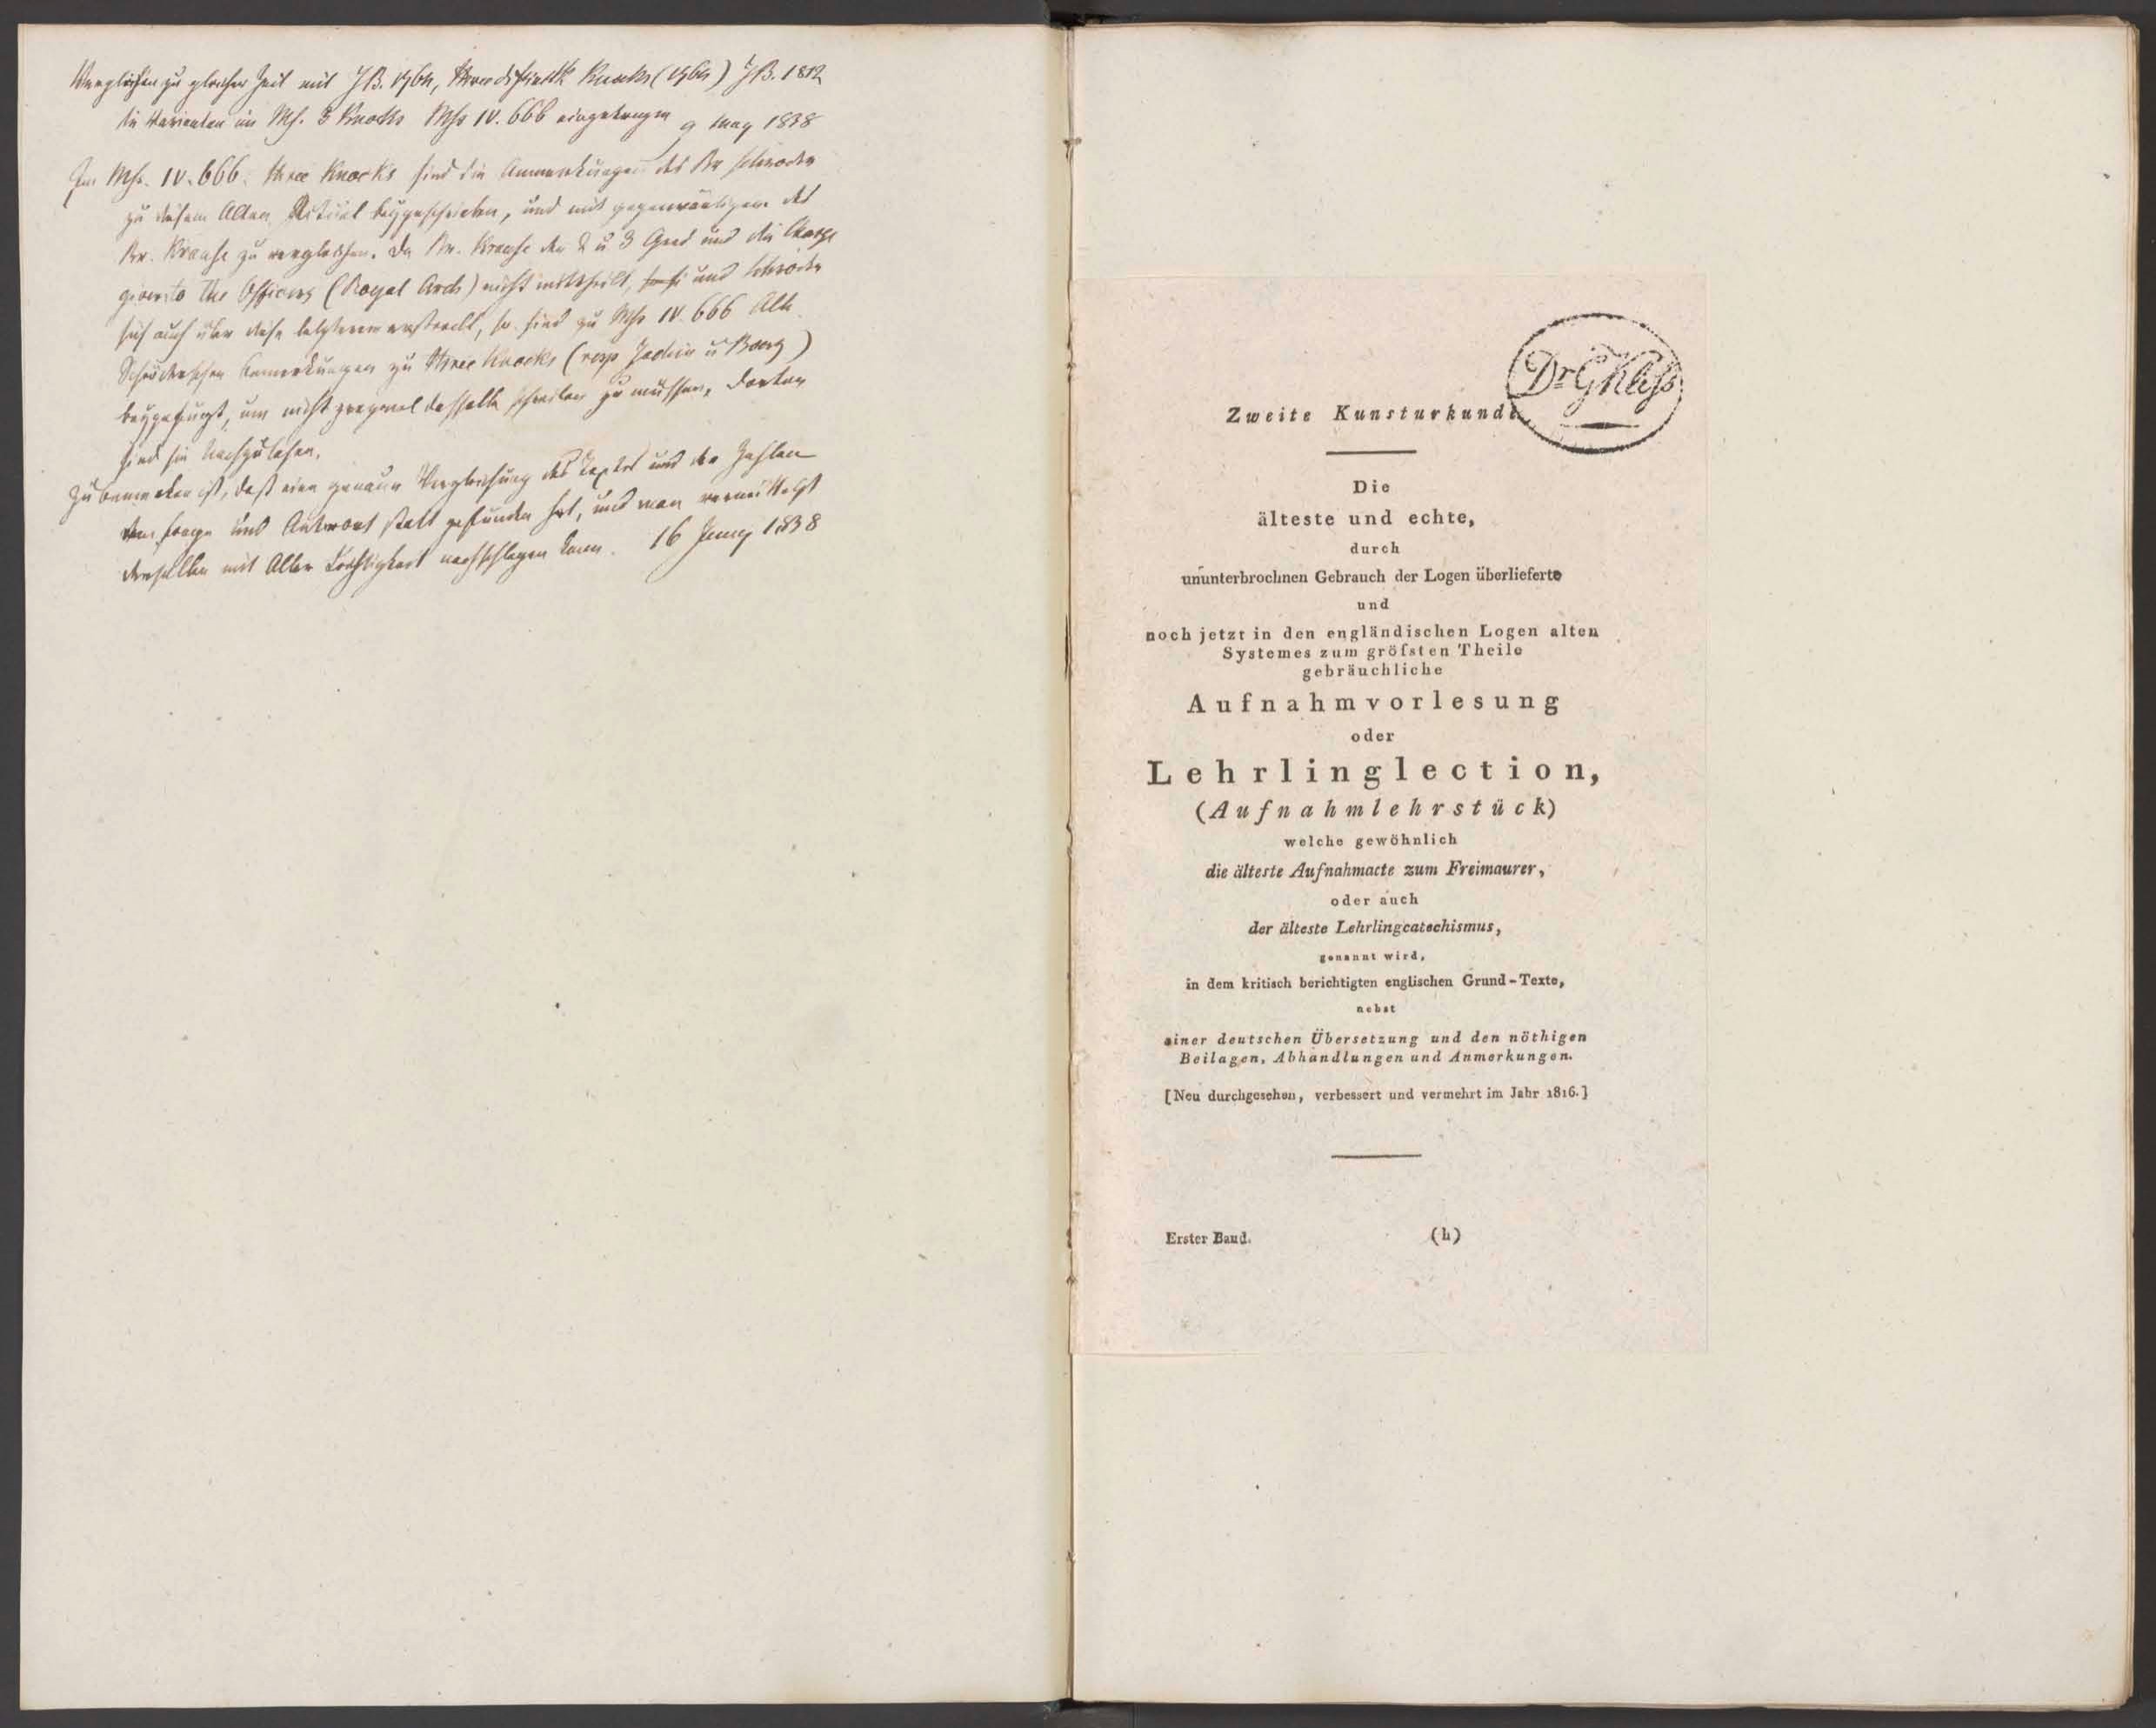 Verglichen zu gleicher Zeit mit J B. 1764, Three distinctk Knocks (1764) J B. 1812
die Varianten im Mſ. 3 Knocks Mſs IV. 666 eingetragen 9 May 1838
Im Mſs. IV. 666. three Knocks sind die Anmerkungen des Br Schroeder
zu diesem Alten Ritual beygeschrieben, und mit gegenwärtigem des
Br. Krause zu vergleichen. Da Br. Krause den 2 u 3 Grad und die Charge
given to the Officers (Royal Arch) nicht mittheilt, und Schröder
sich auch über diese letzteren erstreckt, so sind zu Mſs IV. 666 Alle
Schröderschen Bemerkungen zu Three Knocks (resp Jachin u Boaz)
beygefügt, um nicht zweymal dasselbe schreiben zu müssen, dorten
sind sie nachzulesen.
Zu bemerken ist, daß eine genaue Vergleichung des Textes und der Zahlen
von Frage und Antwort statt gefunden hat, und man vermittelst
derselben mit Aller Leichtigkeit nachschlagen kann. 16 Juny 1838
Dr GKloſs
Zweite Kunsturkunde
Die
älteste und echte,
durch
ununterbrochnen Gebrauch der Logen überlieferte
und
noch jetzt in den engländischen Logen alten
Systemes zum gröſsten Theile
gebräuchliche
Aufnahmvorlesung
oder
Lehrlinglection,
(Aufnahmlehrstück)
welche gewöhnlich
die älteste Aufnahmacte zum Freimaurer,
oder auch
der älteste Lehrlingcatechismus,
genannt wird,
in dem kritisch berichtigten englischen Grund-Texte,
nebst
einer deutschen Übersetzung und den nöthigen
Beilagen, Abhandlungen und Anmerkungen.
[Neu durchgesehen, verbessert und vermehrt im Jahr 1816.]
Erster Band. (h)